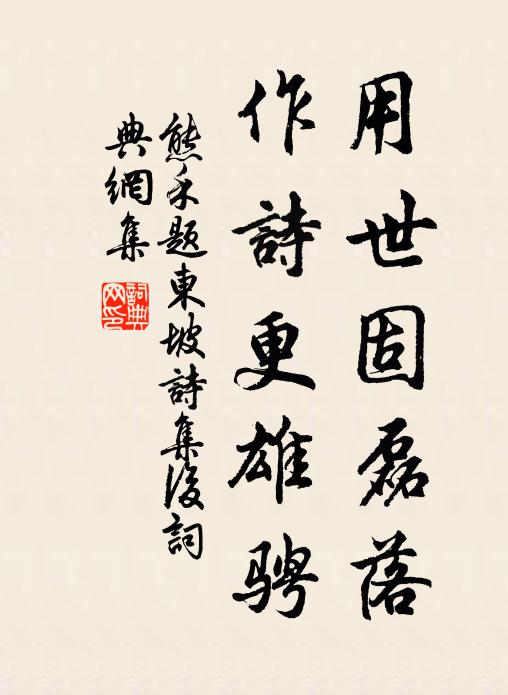 用世固磊落
作詩更雄骋
熊禾題東坡詩集後詞
典網集
詞典網印